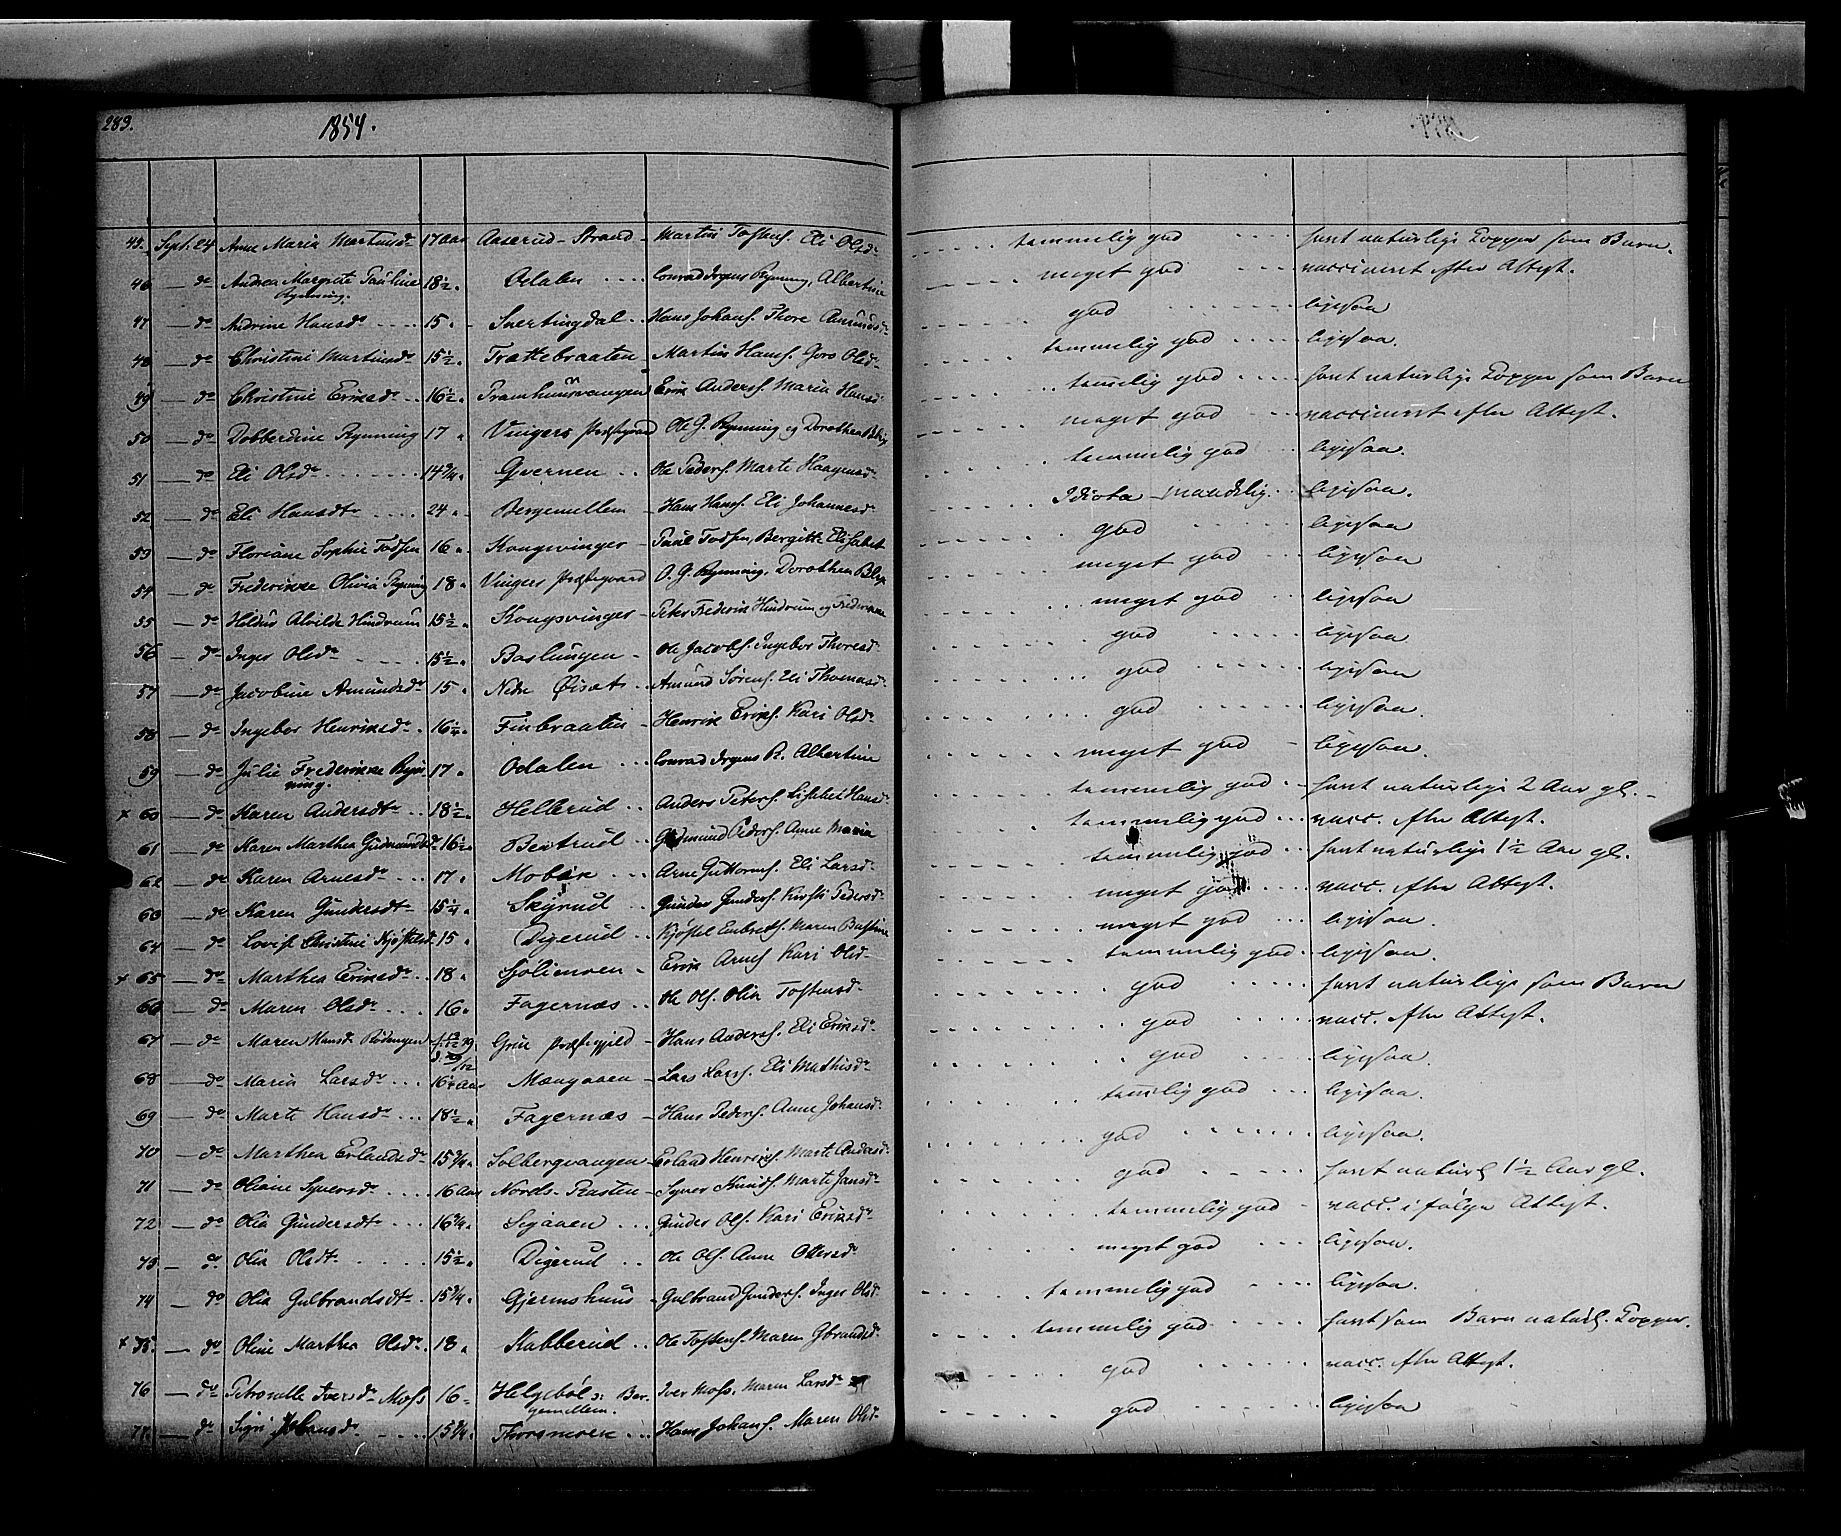 289. 1854.
45. Sept. 24 Anne Maria Martinsdr 17 Aar Aaserud-Strand - Martin Tostens. Eli Olsdr .... temmelig god .... havt naturlige Kopper som Barn
46 — do Andrea Margrete Pauline Rynning. 18½ „ Odalen .... Conrad Irgens Rynning, Albertine .... meget god .... vaccineret efter Attest.
47 — do Andrine Hansdr .... 15 „ Snertingdal .. Hans Johans. Thore Amundsdr .... god .... ligesaa
48 — do Christine Martinsdr 15½ „ Trættebraaten - Martin Hans. Goro Olsdr .... temmelig god .... ligesaa.
49 — do Christine Eriksdr .. 16½ „ Pramhuusvangen Erik Anders. Maria Hansdr .... temelig god .... havt naturlige Kopper som Barn
50 — do Dobberdine Rynning 17 „ Vingers Præstegaard Ole G. Rynning og Dorothea .... meget god .... vaccineret efter Attest.
51 — do Eli Olsdr .... 14¾ „ Qvernen .. Ole Peders. Marte Haagensdr .... temmelig god .... ligesaa.
52 — do Eli Hansdtr .... 24 „ Bergemellem - Hans Hans. Eli Johannesdr .... Idiota - mundtlig .. ligesaa.
53 — do Floriane Sophie Todsen 16 „ Kongsvinger - Paul Todsen, Bergitte Elisabet .... god .... ligesaa
54 — do Frederikke Olivia Rynning 18 „ Vingers Præstegaard O. G. Rynning, Dorothea .... meget god .... ligesaa
55 — do Hildur Alvilde Hindrum 15½ „ Kongsvinger - Peter Frederik Hindrum og Frederikke .... meget god .... ligesaa
56 — do Inger Olsdr .... 15½ „ Baslungen - Ole Jacobs. Ingebor Thoresdr .... god .... ligesaa
57 — do Jacobine Amundsdr 15 „ Nedre Øiset - Amund Sørens. Eli Thomasdr .... god .... ligesaa
58 — do Ingebor Henriksdr .. 16¼ „ Finbraaten - Henrik Eriks. Kari Olsdr .... god .... ligesaa.
59 — do Julie Frederikke Rynning. 17 „ Odalen ... Conrad Irgens R. Albertine .... meget god - ligesaa.
x 60 — do Karen Andersdtr .. 18½ „ Hellerud .. Anders Peters. Lisabet Hansdr .... temmelig god .. havt naturlige 2 Aar gl.
61 — do Karen Marthea Gudmundsdr 16½ „ Bertrud .. Gudmund Peders. Anne Maria .... temmelig god ... vacc. efter Attest.
62 — do Karen Arnesdr ... 17 „ Mobæk ... Arne Guttorms. Eli Larsdr .... temmelig god .. havt naturlige 1½ Aar gl.
63 — do Karen Gundersdtr .. 15¼ „ Skyrud .. Gunder Gunders. Kirsti Pedersdr .... meget god .... vacc. efter Attest.
64 — do Lovise Christine Kjøstelsdr 15 „ Digerud .. Kjøstel Embrets. Maren .... meget god ... ligesaa
x 65 — do Marthea Eriksdr .. 18 „ Sjølimoen - Erik Arnes. Kari Olsdr .... temmelig god . ligesaa.
66 — do Maren Olsdr ... 16 „ Fagernæs .. Ole Ols. Olia Tostensdr .... god .... havt naturlige som Barn
67 — do Maren Hansdr Rødengen Grue Præstegjeld - Hans Anders. Eli Eriksdr .... god .... vacc. efter Attest.
68 — do Maria Larsdr ... 16¼ Aar Mangaaen - Lars Lars. Eli Mathisdr .... god .... ligesaa
69 — do Marte Hansdr ... 18½ „ Fagernæs - Hans Peders. Anne Johansdr .... temelig god ... ligesaa.
70 — do Marthea Erlandsdr 15¾ „ Solbergvangen - Erland Henriks. Marte Andersdr .... god .... ligesaa.
71 — do Oliane Syversdr .... 16 Aar Nords-Rasten - Syver Knuds. Marte Jansdr .... god .... havt naturl. 1½ Aar gl.
72 — do Olia Gundersdtr ... 16¾ „ Segaaen ... Gunder Ols. Kari Eriksdr .... temmelig god - vacc. ifølge Attest.
73 — do Olia Olsdtr .... 15½ „ Digerud ... Ole Ols. Anne Ottersdr .... meget god ... ligesaa.
74 — do Olia Gulbrandsdtr . 15¾ „ Gjermshuus - Gulbrand Gunders. Inger Olsdr .... temmelig god .... ligesaa
x 75. — do Oline Marthea Olsdr 18 „ Stabberud .. Ole Tostens. Maren Gbrandsdr .... temmelig god .... havt som Barn naturl. Kopper.
76 — do Petronelle Iversdr Moss 16 „ Helgebøl o: Bergemellem. Iver Moss. Maren Larsdr .... god .... vacc. efter Attest.
77. — do Sigri Johansdr .... 15¾ „ Thorsmoen ... Hans Johans. Maren Olsdr .... god .... ligesaa